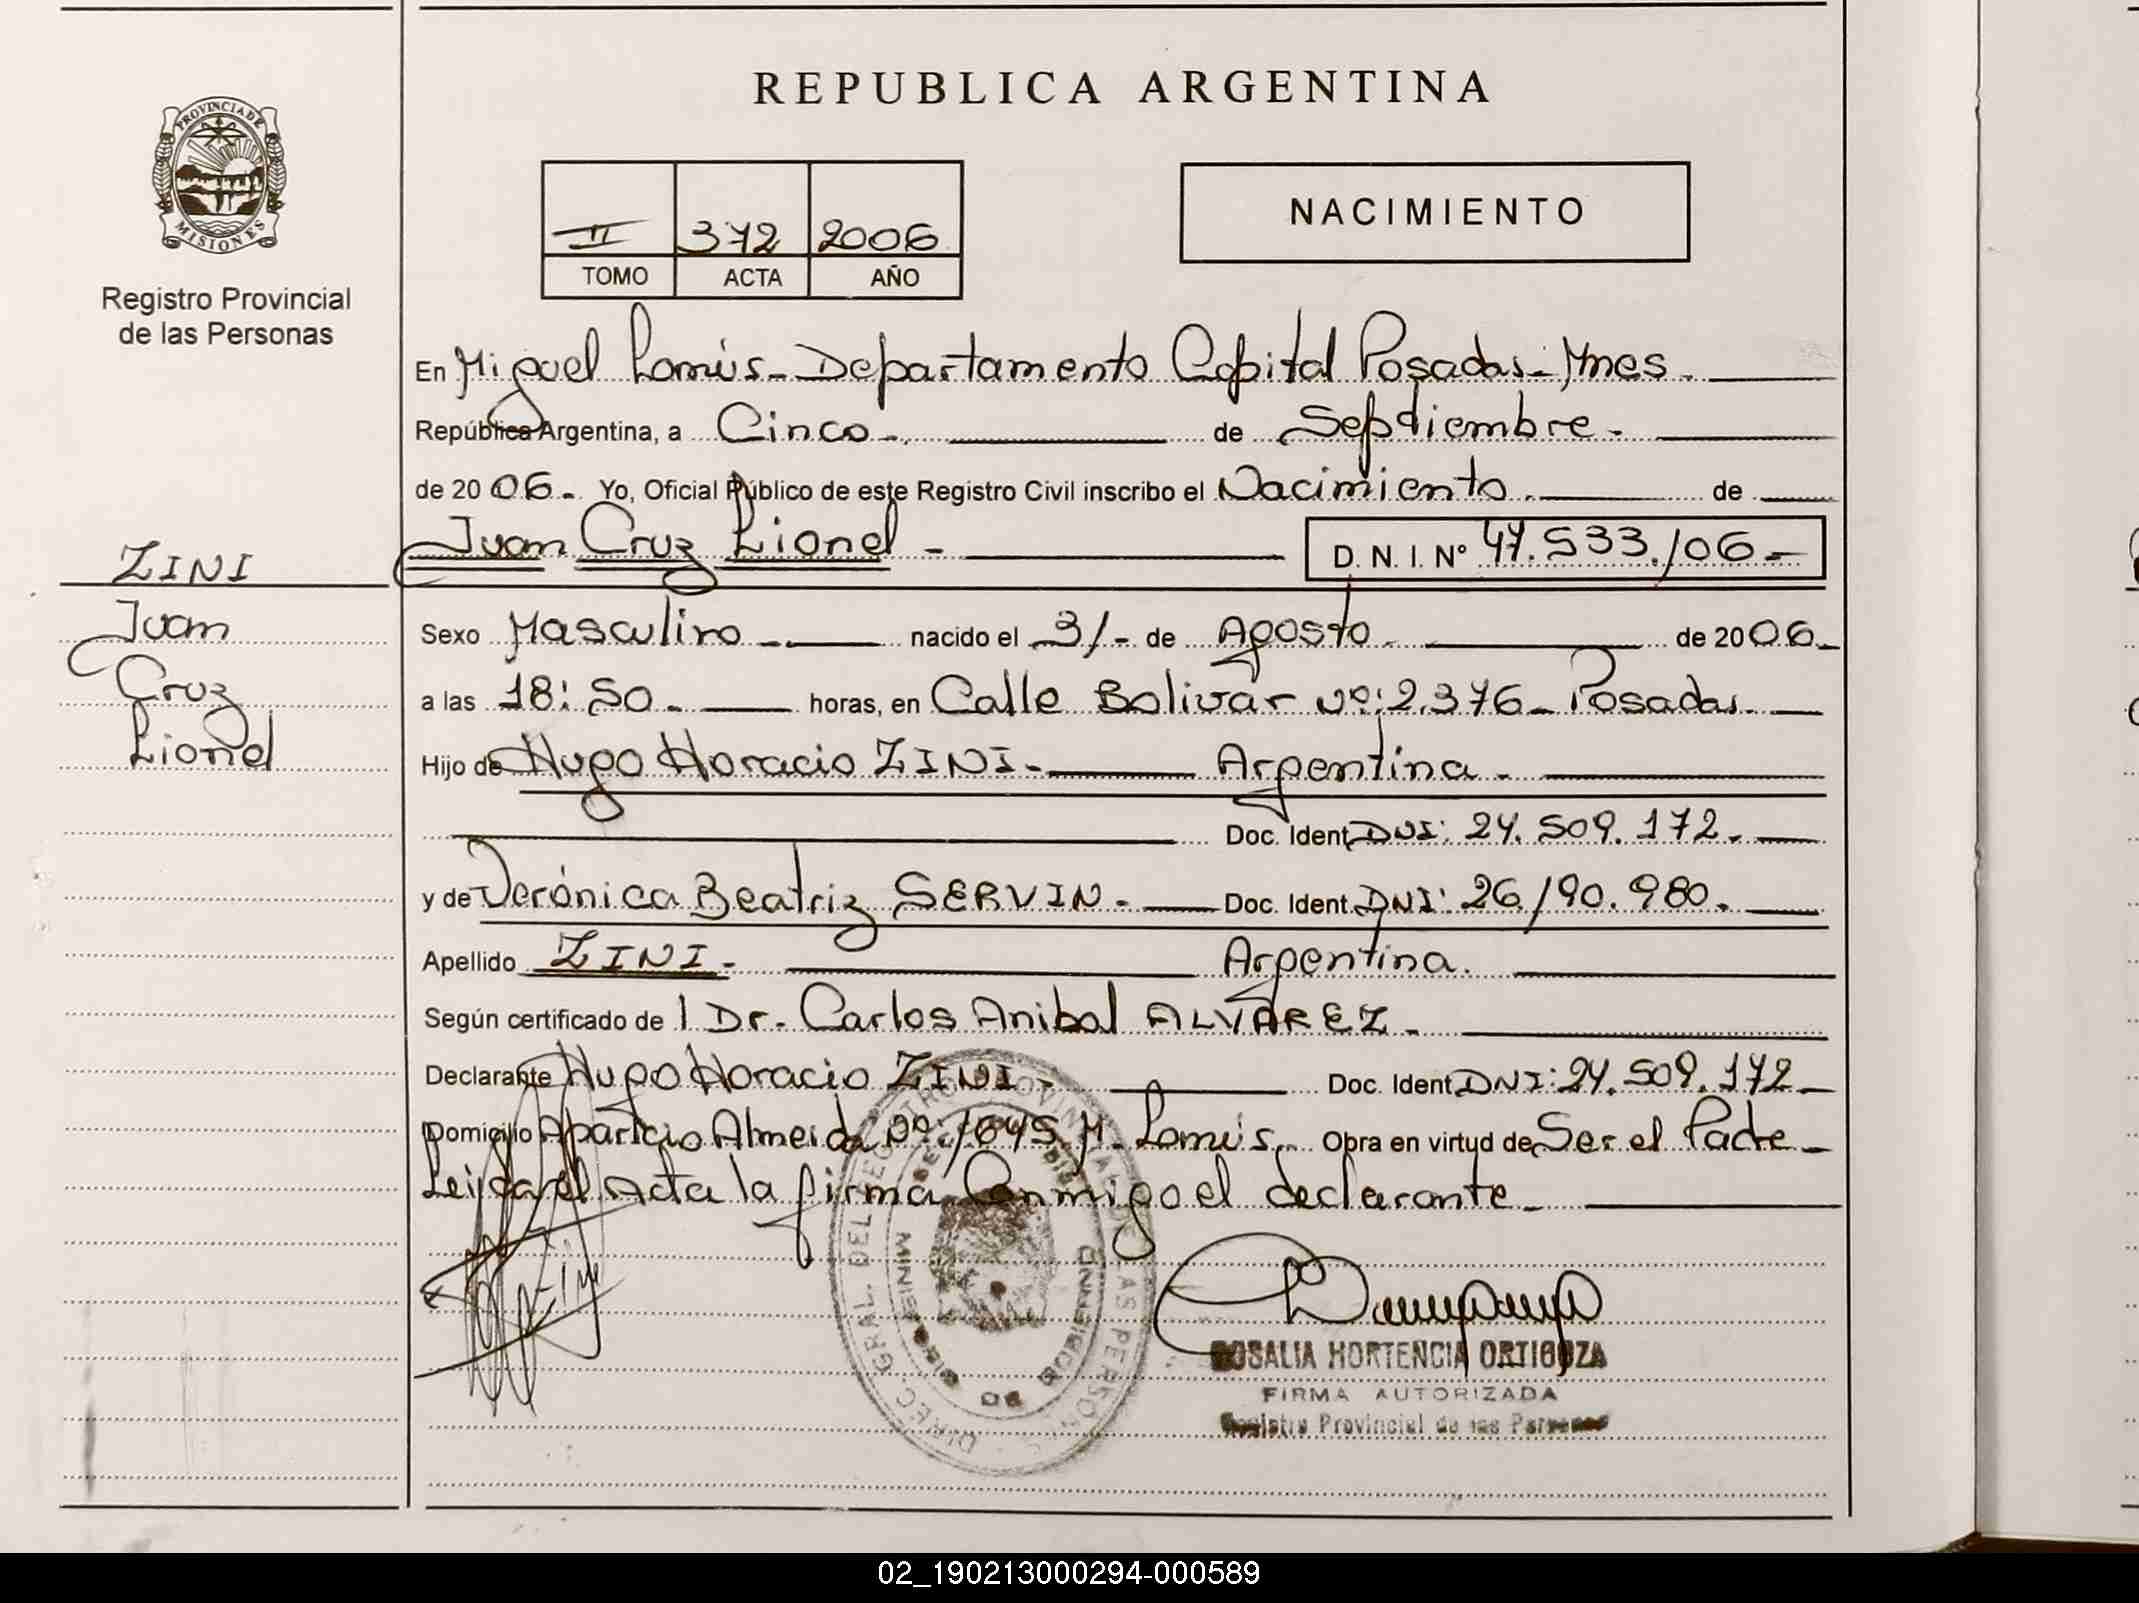 REPUBLICA ARGENTINA
PROVINCIA DE
MISIONES
Registro Provincial
de las Personas
II 372 2006
TOMO ACTA AÑO
NACIMIENTO
En Miguel Lanús - Departamento Capital Posadas - Mnes.
República Argentina, a Cinco-. de Septiembre.
de 2006. Yo, Oficial Público de este Registro Civil inscribo el Nacimiento. de
Juan Cruz Lionel - D. N. I. N° 47.533./06-
ZINI
Juan
Cruz
Lionel
Sexo Masculino - nacido el 31- de Agosto. de 2006.
a las 18:50. horas, en Calle Bolivar Nº: 2.376 - Posadas.
Hijo de Hugo Horacio ZINI. Argentina.
Doc. Ident. DNI: 24.509.172.
y de Verónica Beatriz SERVIN. Doc. Ident. DNI: 26.190.980.
Apellido ZINI. Argentina.
Según certificado de l Dr. Carlos Anibal ALVAREZ.
Declarante Hugo Horacio ZINI. Doc. Ident. DNI: 24.509.172-
Domicilio Aparicio Almeida Nº: 1645 M. Lanús. Obra en virtud de Ser el Padre-
Leida el Acta la firma Conmigo el declarante-
ROSALIA HORTENCIA ORTIGOZA
FIRMA AUTORIZADA
Registro Provincial de las Personas
02_190213000294-000589